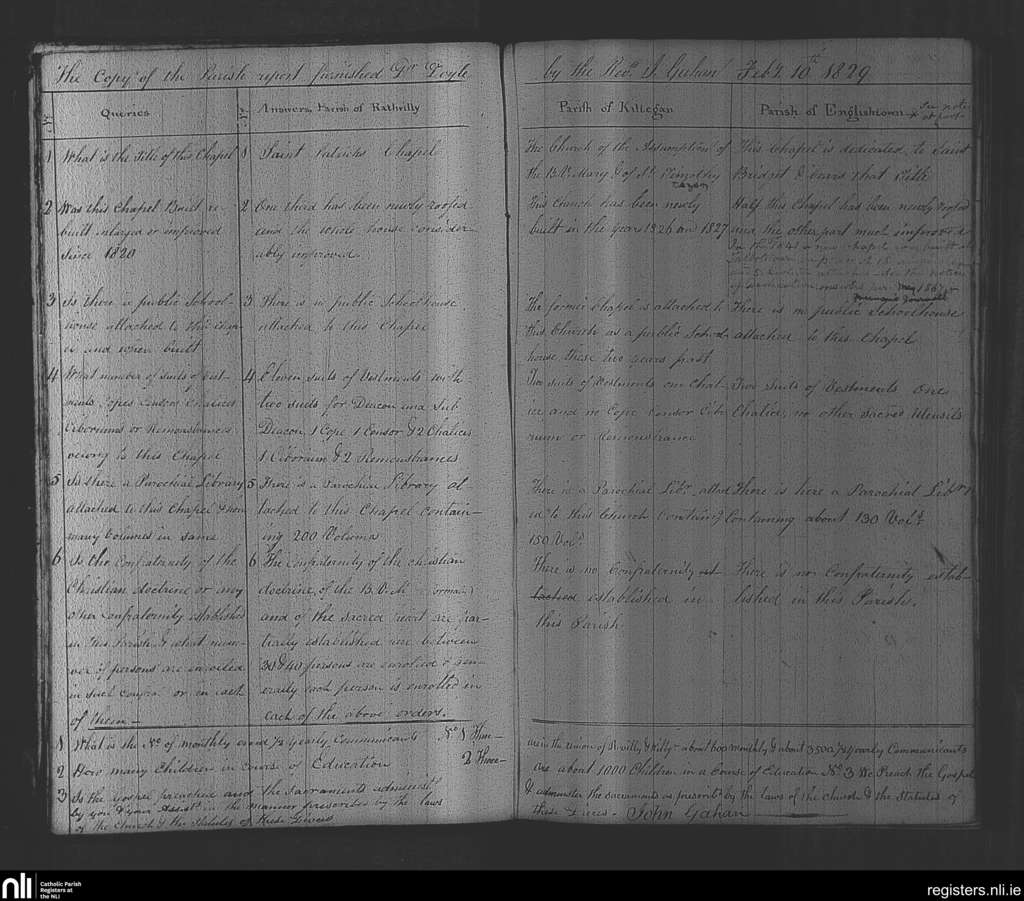 The Copy of the Parish report furnished Dr Doyle by the Revd J. Gahan Feby 10th 1829
Queries
Answers, Parish of Rathvilly
Parish of Killegan
Parish of Englishtown
See note
1 What is the Title of this Chapel
1 Saint Patricks Chapel
The Church of the Assumption of
the B. V. Mary & of St. Timothy
This Chapel is dedicated to Saint
Bridgit & bears that Title
2 Was this Chapel Built re-
built enlarged or improved
since 1820
2 One third has been newly roofed
and the whole house consider-
ably improved.
This Church has been newly
built in the years 1826 and 1827
Half this Chapel has been newly roofed
and the other part much improved
In the 1841 a new chapel was built at
May 1867
3 Is there a public School-
house attached to this
and when built
3 There is no public Schoolhouse
attached to this Chapel
The former Chapel is attached to
this Church as a public School
house these two years past
There is no public Schoolhouse
attached to this Chapel
4 What number of suits of Vest-
ments Copes Censors Chalices
Ciboriums or Remonstrances
belong to this Chapel
4 Eleven suits of Vestments with
two suits for Deacon and Sub
Deacon, 1 Cope 1 Censor & 2 Chalices
1 Ciborium & 2 Remonstrances
Two suits of Vestments one Chal-
ice and no Cope Censor Cibo
rium or Remonstrance
Two Suits of Vestments One
Chalice, no other sacred Utensils
5 Is there a Parochial Library
attached to this Chapel & how
many Volumes in same
5 There is a Parochial Library at
tached to this Chapel contain-
ing 200 Volumes
There is a Parochial Liby. attach
ed to this Church Containg
150 Vols.
There is here a Parochial Liby
Containing about 130 Vols.
6 Is the Confraternity of the
Christian doctrine or any
other Confraternity established
in this Parish & what num-
ber of persons are enrolled
in such or in each
of them -
6 The Confraternity of the christian
doctrine, of the B. V. M.
and of the sacred heart are par-
tially established here between
30 & 40 persons are enrolled & gen-
erally each person is enrolled in
each of the above orders.
There is no Confraternity at-
tached established in
this Parish
There is no Confraternity estab-
lished in this Parish.
1 What is the No. of monthly and ½ yearly Communicants
No 1 There
are in the union of Rvilly & Killy about 600 monthly & about 3500 ½ yearly Communicants
2 How many Children in course of Education
2 There
are about 1000 Children in a Course of Education No 3 We Preach the Gospel
3 Is the Gospel preached and the Sacraments administd
by you & your Assistts in the manner prescribed by the laws
of the Church & the Statutes of these Dioceses
& administer the sacraments as prescribd by the laws of the Church & the Statutes of
these Dioces - John Gahan
nli
Catholic Parish
Registers at
the NLI
registers.nli.ie